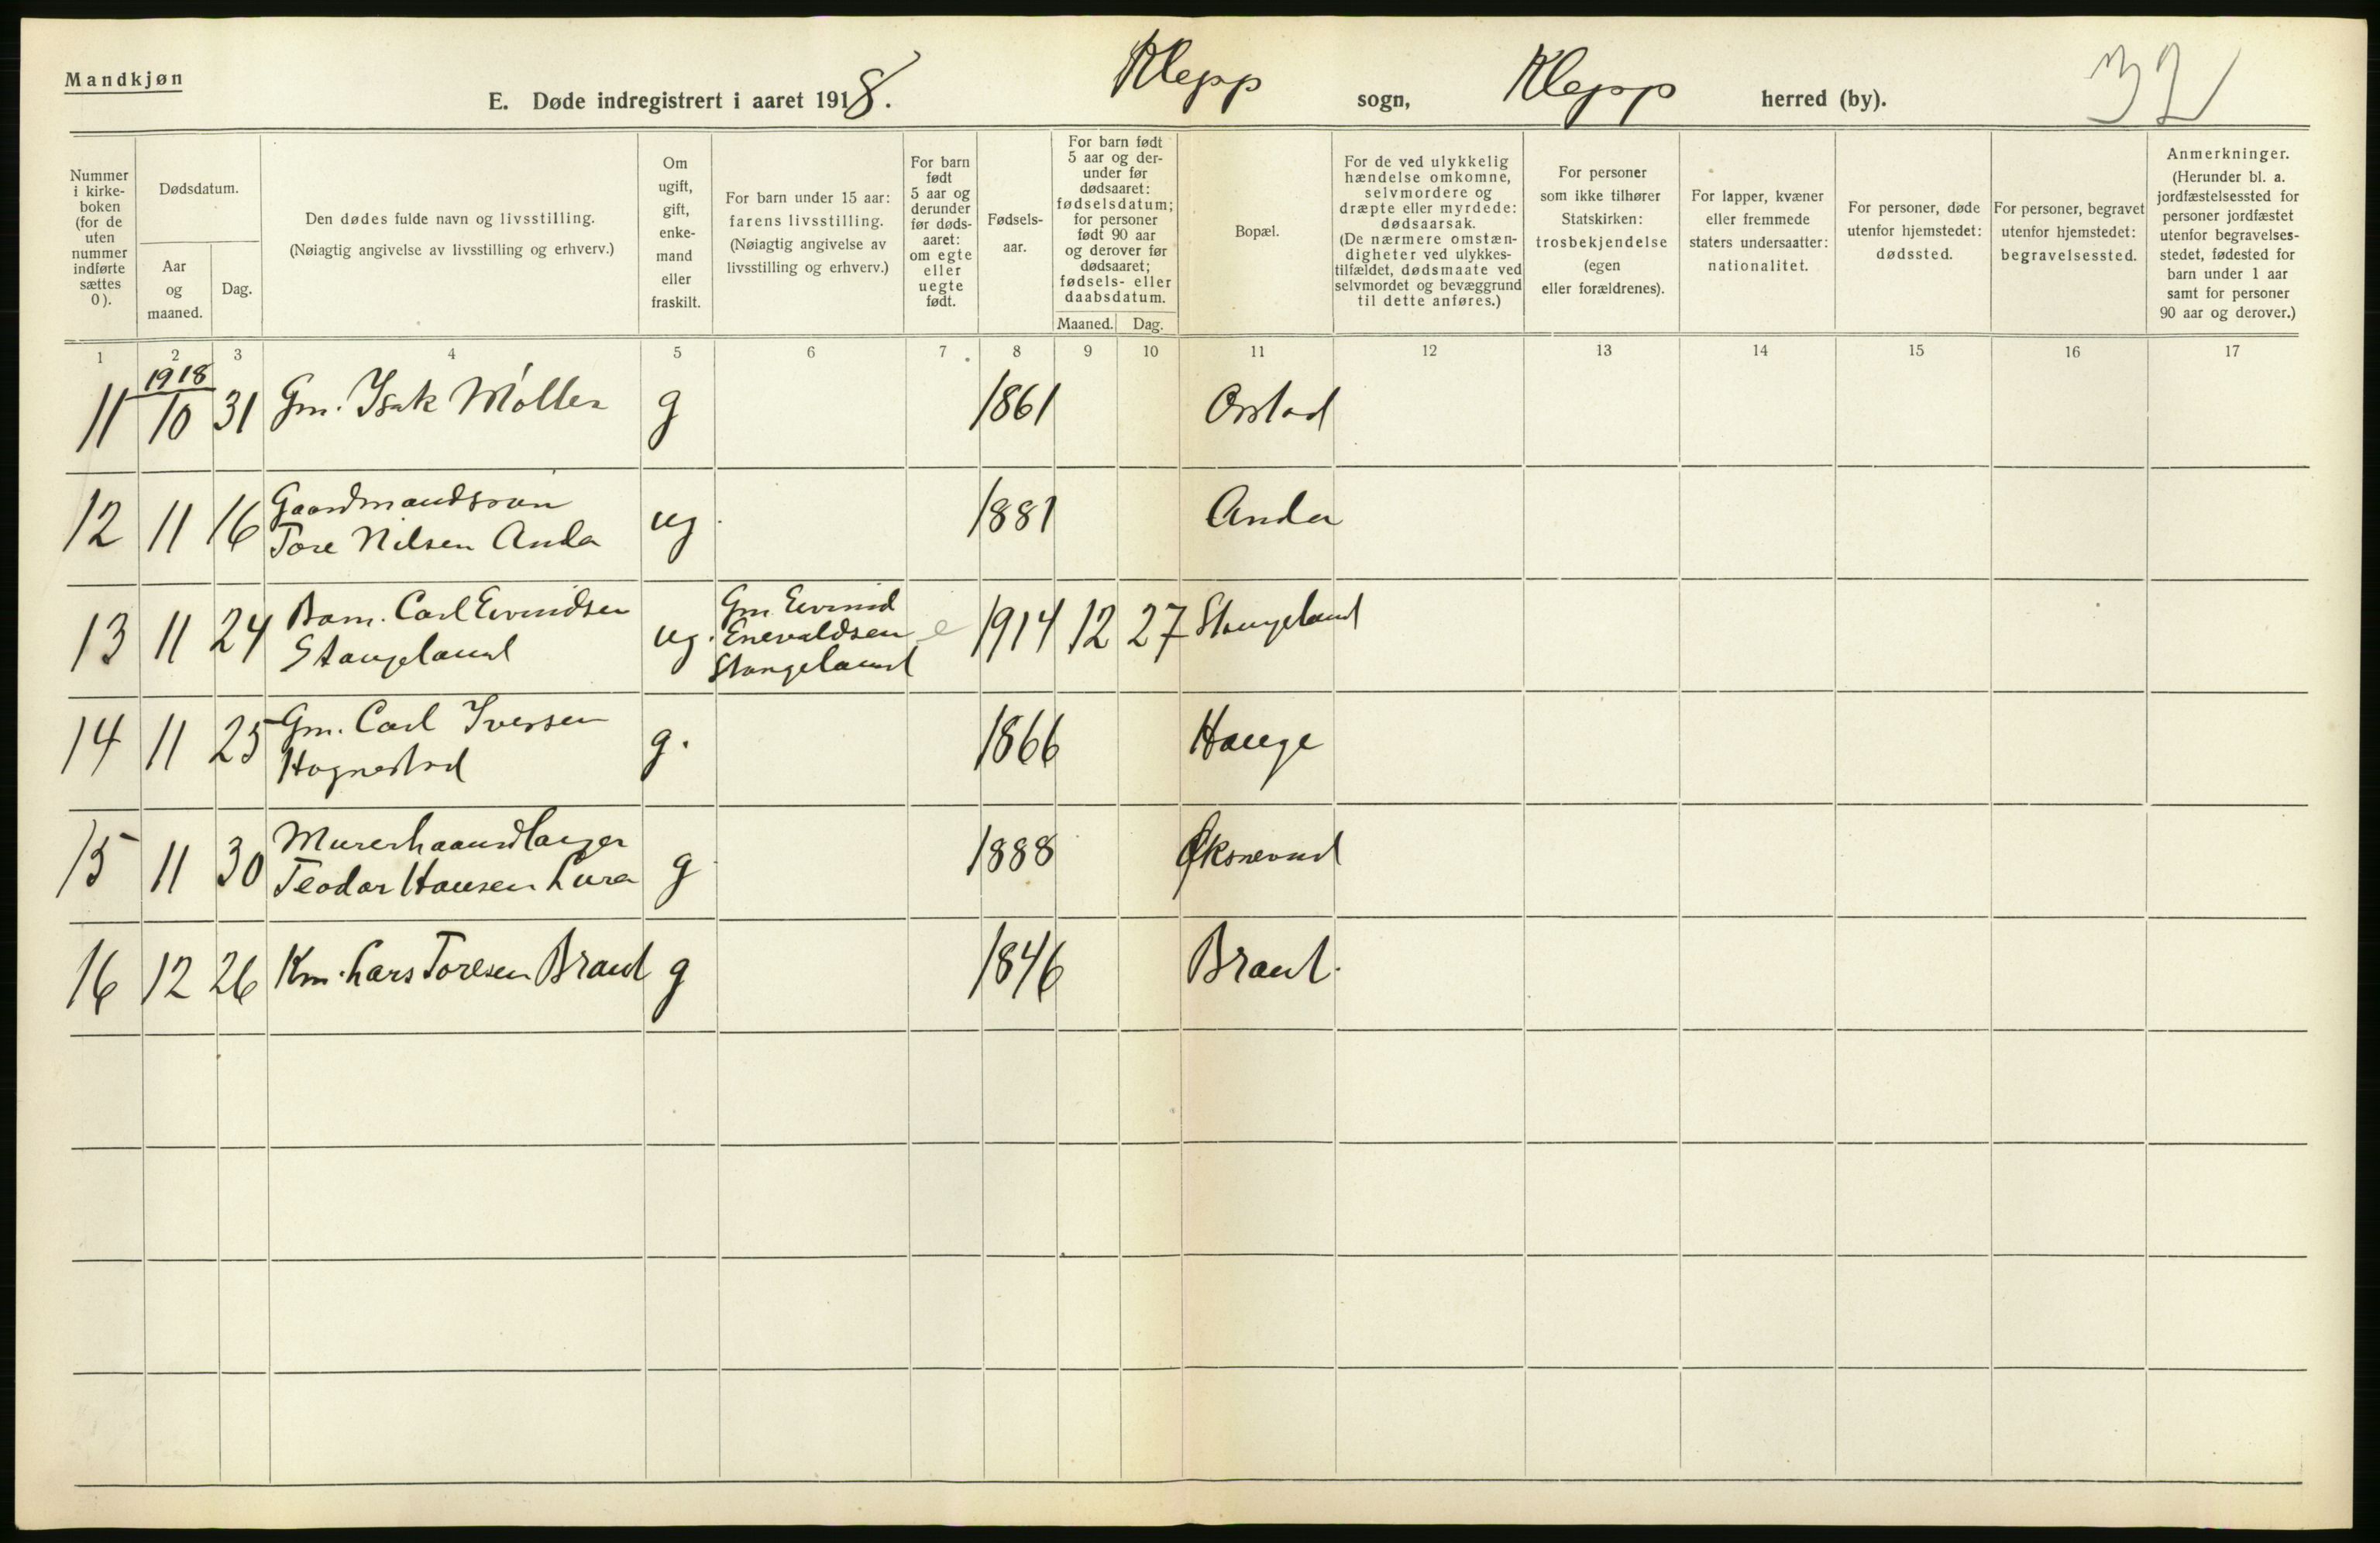 Mandkjøn
E. Døde indregistrert i aaret 1918. Klepp sogn, Klepp herred (by). 32
Nummer i kirke- boken (for de uten nummer indførte sættes 0).
Dødsdatum.
Aar og maaned.
Dag.
Den dødes fulde navn og livsstilling.
(Nøiagtig angivelse av livsstilling og erhverv.)
Om ugift, gift, enke- mand eller fraskilt.
For barn under 15 aar: farens livsstilling. (Nøiagtig angivelse av livsstilling og erhverv.)
For barn født 5 aar og derunder før døds- aaret: om egte eller uegte født.
Fødsels- aar.
For barn født 5 aar og der- under før dødsaaret: fødselsdatum; for personer født 90 aar og derover før dødsaaret; fødsels- eller daabsdatum.
Maaned. Dag.
Bopæl.
For de ved ulykkelig hændelse omkomne, selvmordere og dræpte eller myrdede: dødsaarsak. (De nærmere omstæn- digheter ved ulykkes- tilfældet, dødsmaate ved selvmordet og bevæggrund til dette anføres.)
For personer som ikke tilhører Statskirken: trosbekjendelse (egen eller forældrenes).
For lapper, kvæner eller fremmede staters undersaatter: nationalitet.
For personer, døde utenfor hjemstedet: dødssted.
For personer, begravet utenfor hjemstedet: begravelsessted.
Anmerkninger. (Herunder bl. a. jordfæstelsessted for personer jordfæstet utenfor begravelses- stedet, fødested for barn under 1 aar samt for personer 90 aar og derover.)
1 2 3 4 5 6 7 8 9 10 11 12 13 14 15 16 17
1918
11 10 31 Gm. Isak Móller g 1861 Orstad
12 11 16 Gaardmandssøn
Tore Nilsen Anda ug. 1881 Anda
13 11 24 Barn. Carl Eivindsen
Stangeland ug. Gm. Eivind
Enevaldsen
Stangeland e 1914 12 27 Stangeland
14 11 25 Gm. Carl Iversen
Hognestad g. 1866 Hauge
15 11 30 Murerhaandlanger
Teodor Hansen Lura g 1888 Øksnevad
16 12 26 Km. Lars Toresen Braut g 1846 Braut.